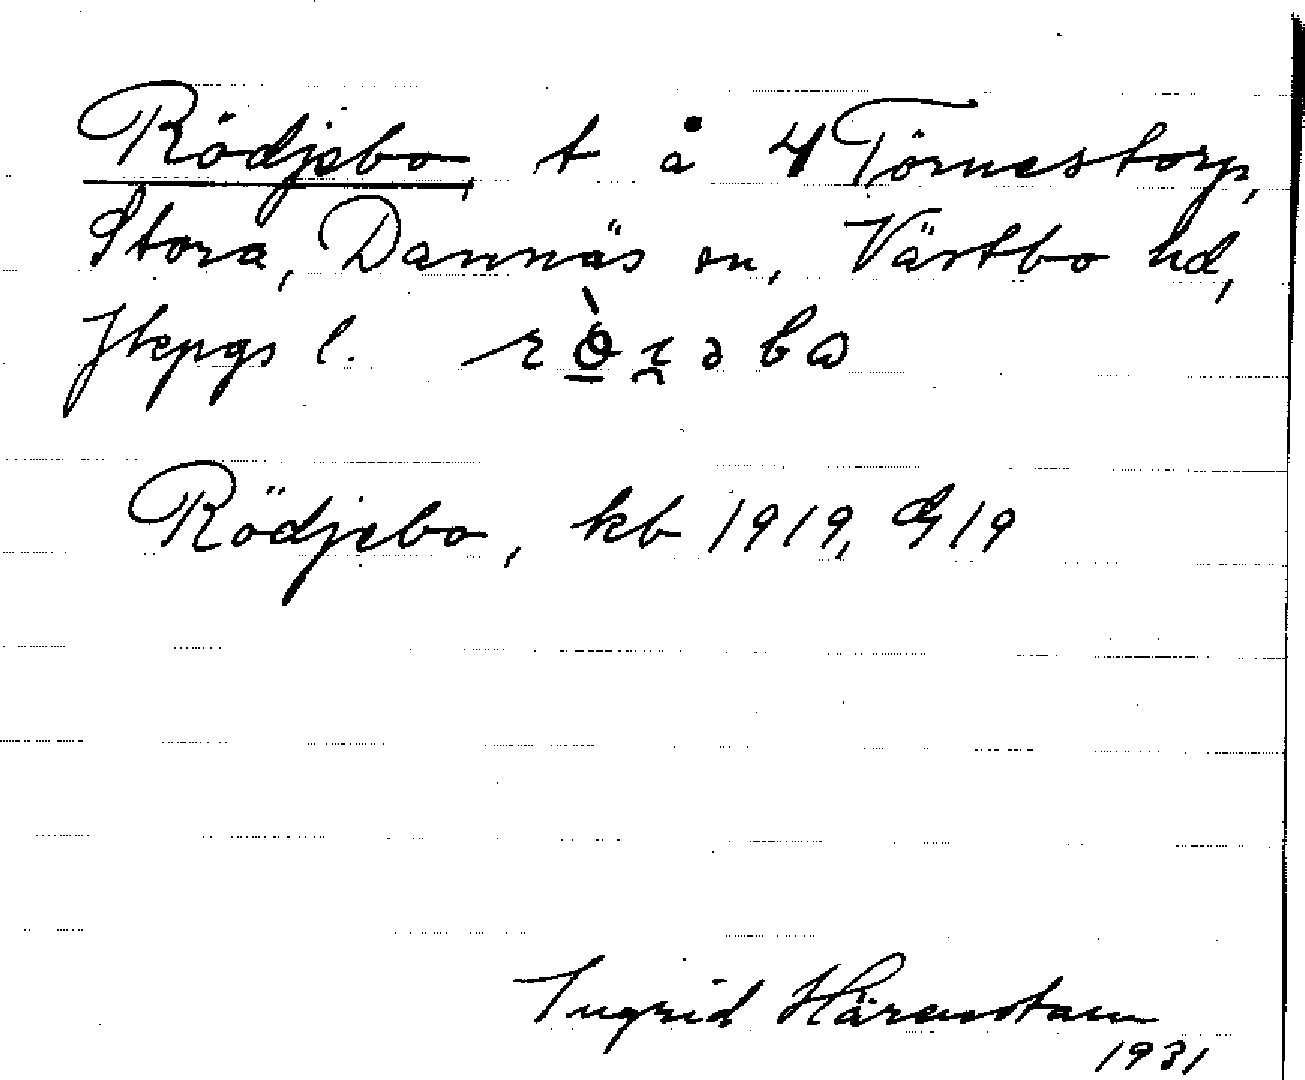 Rödjebo t å 4 Törnestorp,
Stora, Dannäs sn, Västbo hd,
Jkpgs l.
Rödjebo, kb 1919, G 19
Ingrid Härenstam
1931